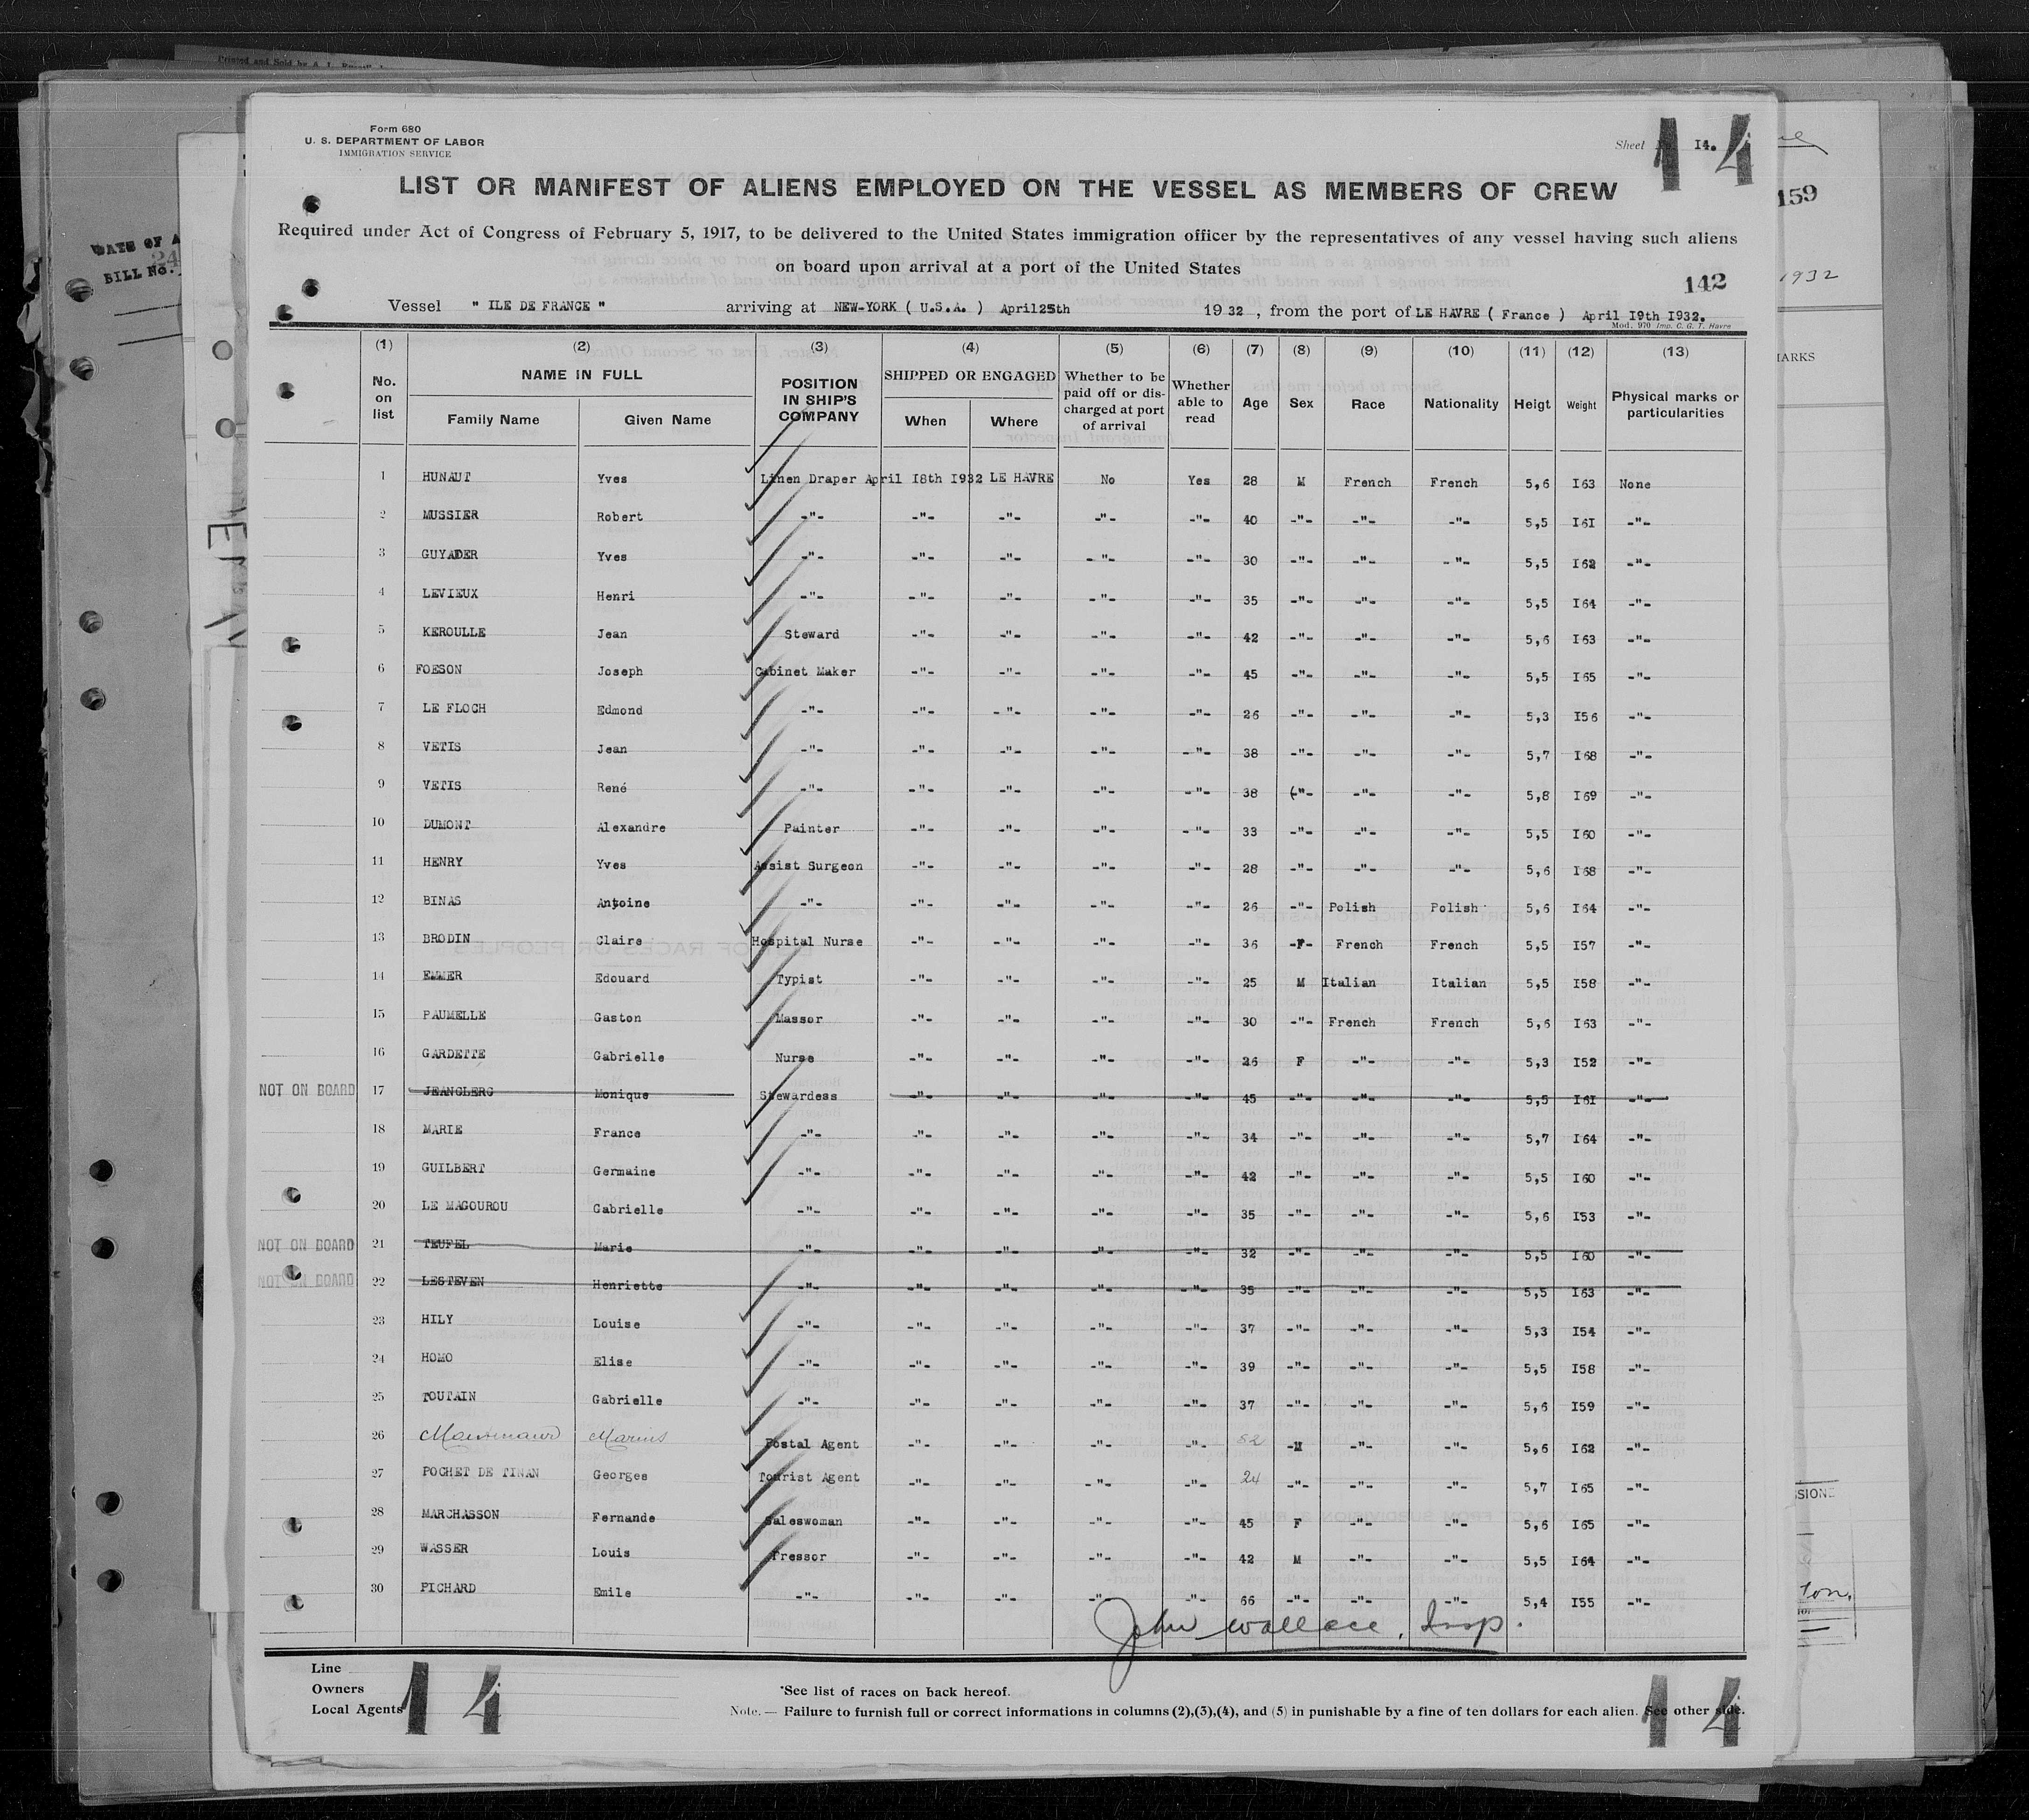 Form 680
U. S. DEPARTMENT OF LABOR
IMMIGRATION SERVICE
Sheet No. I4.
14
LIST OR MANIFEST OF ALIENS EMPLOYED ON THE VESSEL AS MEMBERS OF CREW
Required under Act of Congress of February 5, 1917, to be delivered to the United States immigration officer by the representatives of any vessel having such aliens
on board upon arrival at a port of the United States
142
Vessel " ILE DE FRANCE " arriving at NEW-YORK ( U.S.A. ) April25th 1932 , from the port of LE HAVRE ( France ) April I9th I932.
Mod. 970 Imp. C. G. T. Havre
(1) (2) (3) (4) (5) (6) (7) (8) (9) (10) (11) (12) (13)
No. on list NAME IN FULL Family Name Given Name POSITION IN SHIP'S COMPANY SHIPPED OR ENGAGED When Where Whether to be paid off or discharged at port of arrival Whether able to read Age Sex Race Nationality Heigt Weight Physical marks or particularities
1 HUNAUT Yves Linen Draper April I8th I932 LE HAVRE No Yes 28 M French French 5,6 I63 None
2 MUSSIER Robert -"- -"- -"- -"- -"- 40 -"- -"- -"- 5,5 I6I -"-
3 GUYADER Yves -"- -"- -"- -"- -"- 30 -"- -"- -"- 5,5 I62 -"-
4 LEVIEUX Henri -"- -"- -"- -"- -"- 35 -"- -"- -"- 5,5 I64 -"-
5 KEROULLE Jean Steward -"- -"- -"- -"- 42 -"- -"- -"- 5,6 I63 -"-
6 FOESON Joseph Cabinet Maker -"- -"- -"- -"- 45 -"- -"- -"- 5,5 I65 -"-
7 LE FLOCH Edmond -"- -"- -"- -"- -"- 26 -"- -"- -"- 5,3 I56 -"-
8 VETIS Jean -"- -"- -"- -"- -"- 38 -"- -"- -"- 5,7 I68 -"-
9 VETIS René -"- -"- -"- -"- -"- 38 -"- -"- -"- 5,8 I69 -"-
10 DUMONT Alexandre Painter -"- -"- -"- -"- 33 -"- -"- -"- 5,5 I60 -"-
11 HENRY Yves Assist Surgeon -"- -"- -"- -"- 28 -"- -"- -"- 5,6 I68 -"-
12 BINAS Antoine -"- -"- -"- -"- -"- 26 -"- Polish Polish 5,6 I64 -"-
13 BRODIN Claire Hospital Nurse -"- -"- -"- -"- 36 -F- French French 5,5 I57 -"-
14 EMMER Edouard Typist -"- -"- -"- -"- 25 M Italian Italian 5,5 I58 -"-
15 PAUMELLE Gaston Massor -"- -"- -"- -"- 30 -"- French French 5,6 I63 -"-
16 GARDETTE Gabrielle Nurse -"- -"- -"- -"- 26 F -"- -"- 5,3 I52 -"-
NOT ON BOARD 17 JEANCLERC Monique Stewardess -"- -"- -"- -"- 45 -"- -"- -"- 5,5 I6I -"-
18 MARIE France -"- -"- -"- -"- -"- 34 -"- -"- -"- 5,7 I64 -"-
19 GUILBERT Germaine -"- -"- -"- -"- -"- 42 -"- -"- -"- 5,5 I60 -"-
20 LE MAGOUROU Gabrielle -"- -"- -"- -"- -"- 35 -"- -"- -"- 5,6 I53 -"-
NOT ON BOARD 21 TEUFEL Marie -"- -"- -"- -"- -"- 32 -"- -"- -"- 5,5 I60 -"-
NOT ON BOARD 22 LESTEVEN Henriette -"- -"- -"- -"- -"- 35 -"- -"- -"- 5,5 I63 -"-
23 HILY Louise -"- -"- -"- -"- -"- 37 -"- -"- -"- 5,3 I54 -"-
24 HOMO Elise -"- -"- -"- -"- -"- 39 -"- -"- -"- 5,5 I58 -"-
25 TOUTAIN Gabrielle -"- -"- -"- -"- -"- 37 -"- -"- -"- 5,6 I59 -"-
26 Marius Postal Agent -"- -"- -"- -"- 52 -M -"- -"- 5,6 I62 -"-
27 POCHET DE TINAN Georges Tourist Agent -"- -"- -"- -"- 24 -"- -"- -"- 5,7 I65 -"-
28 MARCHASSON Fernande Saleswoman -"- -"- -"- -"- 45 F -"- -"- 5,6 I65 -"-
29 WASSER Louis Pressor -"- -"- -"- -"- 42 M -"- -"- 5,5 I64 -"-
30 PICHARD Emile -"- -"- -"- -"- -"- 66 -"- -"- -"- 5,4 I55 -"-
John Wallace, Insp.
Line
Owners
Local Agents
14
*See list of races on back hereof.
Note. — Failure to furnish full or correct informations in columns (2),(3),(4), and (5) in punishable by a fine of ten dollars for each alien. See other side.
14
159
1932